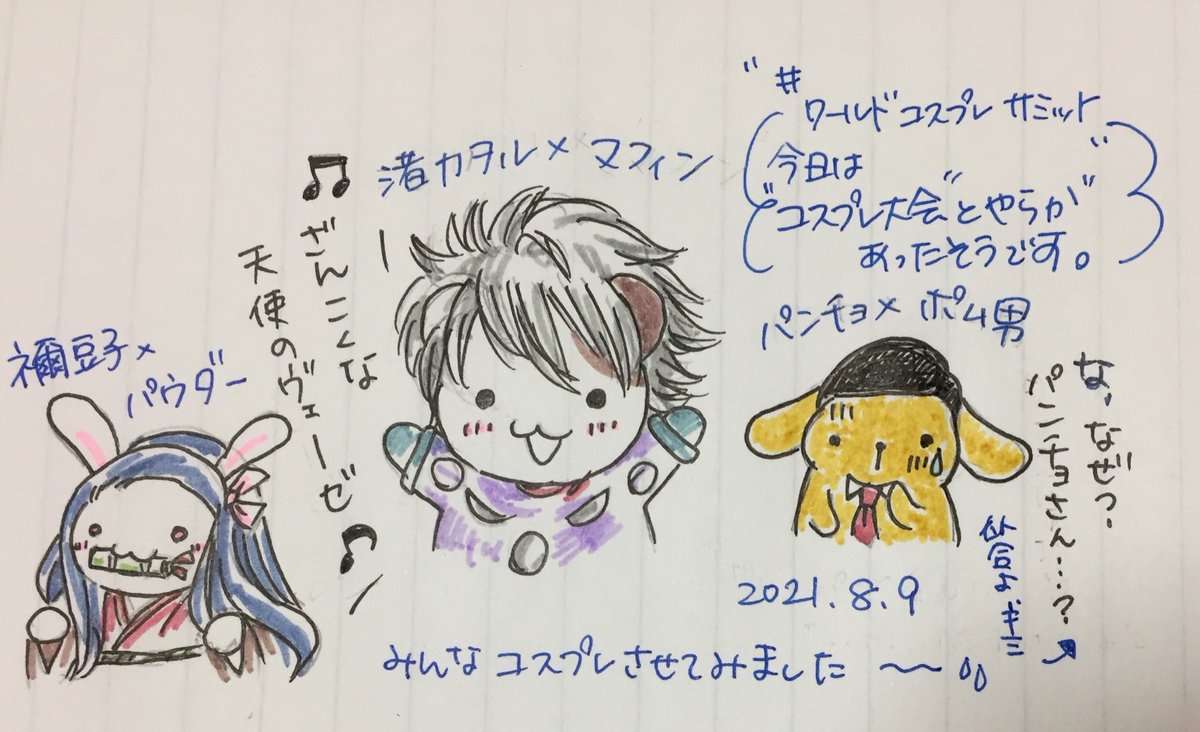 "#ワールドコスプレサミット"
今日は
"コスプレ大会"とやらが
あったそうです。
渚カヲル×マフィン
♪ざんこくな
天使のヴェーゼ♪
禰豆子×
パウダー
パンチョ×ポム男
な、なぜ?
パンチョさん…?
2021.8.9
みんなコスプレさせてみました〜〜